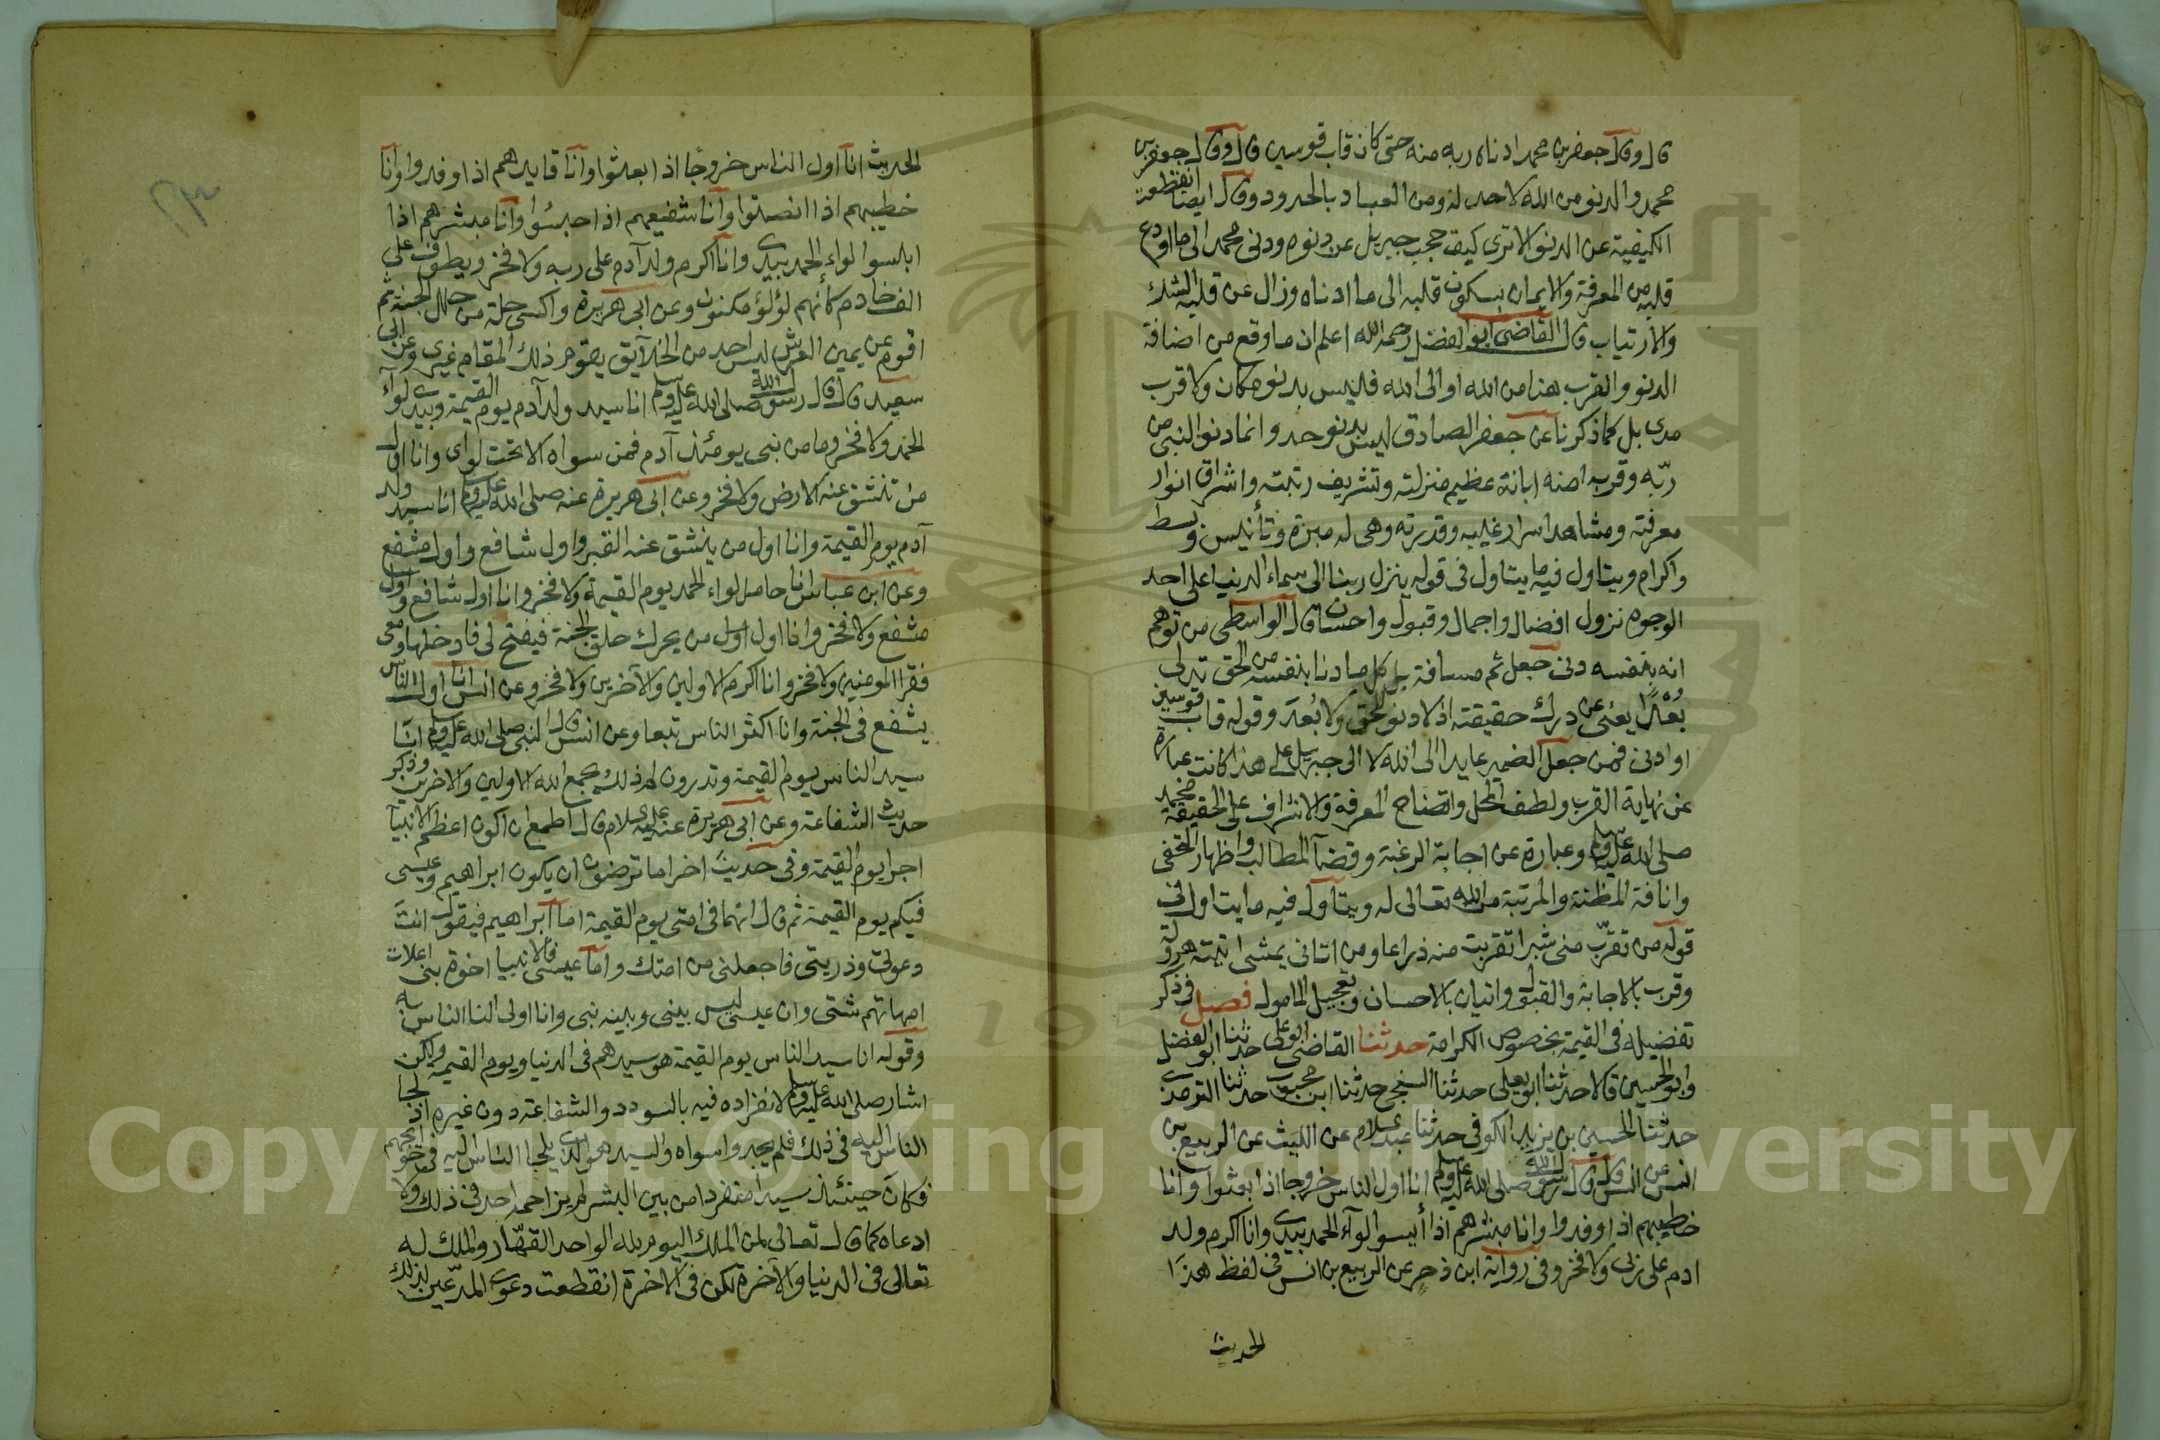 قال وقال جعفر بن محمد ادناه ربه منه حتى كان قاب قوسين قال وقال جعفر بن
محمد والدنو من الله لا حد له ومن العباد بالحدود وقال ايضا انقطعت
الكيفية عن الدنو الا ترى كيف حجب جبريل عن دنوه ودنى محمد الى ما اودع
قلبه من المعرفة والايمان بسكون قلبه الى ما ادناه وزال عن قلبه الشك
والارتياب قال القاضى ابو الفضل رحمه الله اعلم ان ما وقع من اضافة
الدنو والقرب هنا من الله او الى الله فليس بدنو مكان ولا قرب
مدى بل كما ذكرنا عن جعفر الصادق ليس بدنو حد وانما دنو النبى من
ربّه وقربه منه ابانة عظيم منزلته وتشريف رتبته واشراق انوار
معرفته ومشاهدا اسرار غيبه وقدرته وهى له مبرة وتأنيس وبسط
واكرام ويتاول فيه ما يتاول فى قوله ينزل ربنا الى سماء الدنيا على احد
الوجوه نزول افضال واجمال وقبول واحسان قال الواسطى من توهم
انه بنفسه دنى جعل ثم مسافة بل كل ما دنا بنفسه من الحق تدلى
بُعْدًا يعنى عن درك حقيقته اذ لا دنو للحق ولا بُعدَ وقوله قاب قوسين
او ادنى فمن جعل الضمير عايدا الى الله لا الى جبريل على هذا كانت عبارة
عن نهاية القرب ولطف المحل واتضاح المعرفة والاشراف على الحقيقة من محمد
صلى الله عليه وسلم وعبارة عن اجابة الرغبة وقضآ المطالب واظهار التحفى
وانافة المظنة والمرتبة من الله تعالى له ويتاول فيه ما يتاول فى
قوله من تقرّب منى شبرا تقربت منه ذراعا ومن اتانى يمشى اتيته هرولة
وقرب بالاجابة والقبول واتيان بالاحسان وتعجيل المامول فصل فى ذكر
تفضيله فى القيمة بخصوص الكرامة حدثنا القاضى ابو على حدثنا ابو الفضل
وابو الحسين قالا حدثنا ابو يعلى حدثنا السنجى حدثنا ابن محبوب حدثنا الترمذى
حدثنا الحسين بن يزيد الكوفى حدثنا عبد السلام عن الليث عن الربيع بن
انس عن انس قال قال رسول الله صلى الله عليه وسلم انا اول الناس خروجا اذا بعثوا وانا
خطيبهم اذا وفدوا وانا مبشرهم اذا أيسوا لوآء الحمد بيدى وانا اكرم ولد
ادم على ربى ولا فخر وفى رواية ابن زحر عن الربيع بن انس فى لفظ هذا
الحديث
الحديث انا اول الناس خروجًا اذا بعثوا وانا قايدهم اذا وفدوا وانا
خطيبهم اذا انصتوا وانا شفيعهم اذا حبسُوا وانا مبشرهم اذا
ابلسوا لواء الحمد بيدى وانا اكرم ولد آدم على ربه ولا فخر ويطوف على
الف خادم كأنهم لؤلؤ مكنون وعن ابى هريرة واكسى حلة من حلل الجنة ثم
اقوم عن يمين العرش ليس احد من الخلايق يقوم ذلك المقام غيرى وعن ابى
سعيد قال قال رسول الله صلى الله عليه وسلم انا سيد ولد آدم يوم القيمة وبيدى لوآء
الحمد ولا فخر وما من نبى يومئذ آدم فمن سواه الا تحت لواى وانا اول
من تنشق عنه الارض ولا فخر وعن ابى هريرة عنه صلى الله عليه وسلم انا سيد ولد
آدم يوم القيمة وانا اول من ينشق عنه القبر واول شافع واول مشفع
وعن ابن عباس انا حامل لواء الحمد يوم القيمة ولا فخر وانا اول شافع واول
مشفع ولا فخر وانا اول اول من يحرك حلق الجنة فيفتح لى فادخلها ومعى
فقرا المومنين ولا فخر وانا اكرم الاولين والآخرين ولا فخر وعن انس انا اول الناس
يشفع فى الجنة وانا اكثر الناس تبعا وعن انس قال النبى صلى الله عليه وسلم انا
سيد الناس يوم القيمة وتدرون لم ذلك يجمع الله الاولين والاخرين وذكر
حديث الشفاعة وعن ابى هريرة عنه عليه السلام قال اطمع ان اكون اعظم الانبيآ
اجرا يوم القيمة وفى حديث اخر اما ترضون ان يكون ابراهيم وعيسى
فيكم يوم القيمة ثم قال انهما فى امتى يوم القيمة اما ابراهيم فيقول انت
دعوتى وذريتى فاجعلنى من امتك واما عيسى فالانبيا اخوة بنى علات
امهاتهم شتى وان عيسى ليس بينى وبينه نبى وانا اولى النا الناس به
وقوله انا سيد الناس يوم القيمة هو سيدهم فى الدنيا ويوم القيمة ولكن
اشار صلى الله عليه وسلم لانفراده فيه بالسودد والشفاعة دون غيره اذ لجا
الناس اليه فى ذلك فلم يجدوا سواه والسيد هو الذى يلجا الناس اليه فى حوائجهم
فكان حينئذ سيدا منفردا من بين البشر لم يزاحمه احد فى ذلك ولا
ادعاه كما قال تعالى لمن الملك اليوم لله الواحد القهّار والملك له
تعالى فى الدنيا والآخرة لكن فى الاخرة انقطعت دعوى المدّعين لذلك
Copyright © King Saud University